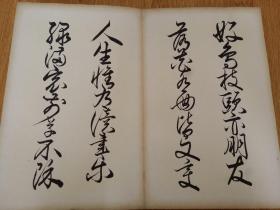 好鳥枝頭亦朋友
落花水面皆文章
人生惟有讀書樂
綠滿窗前草不除